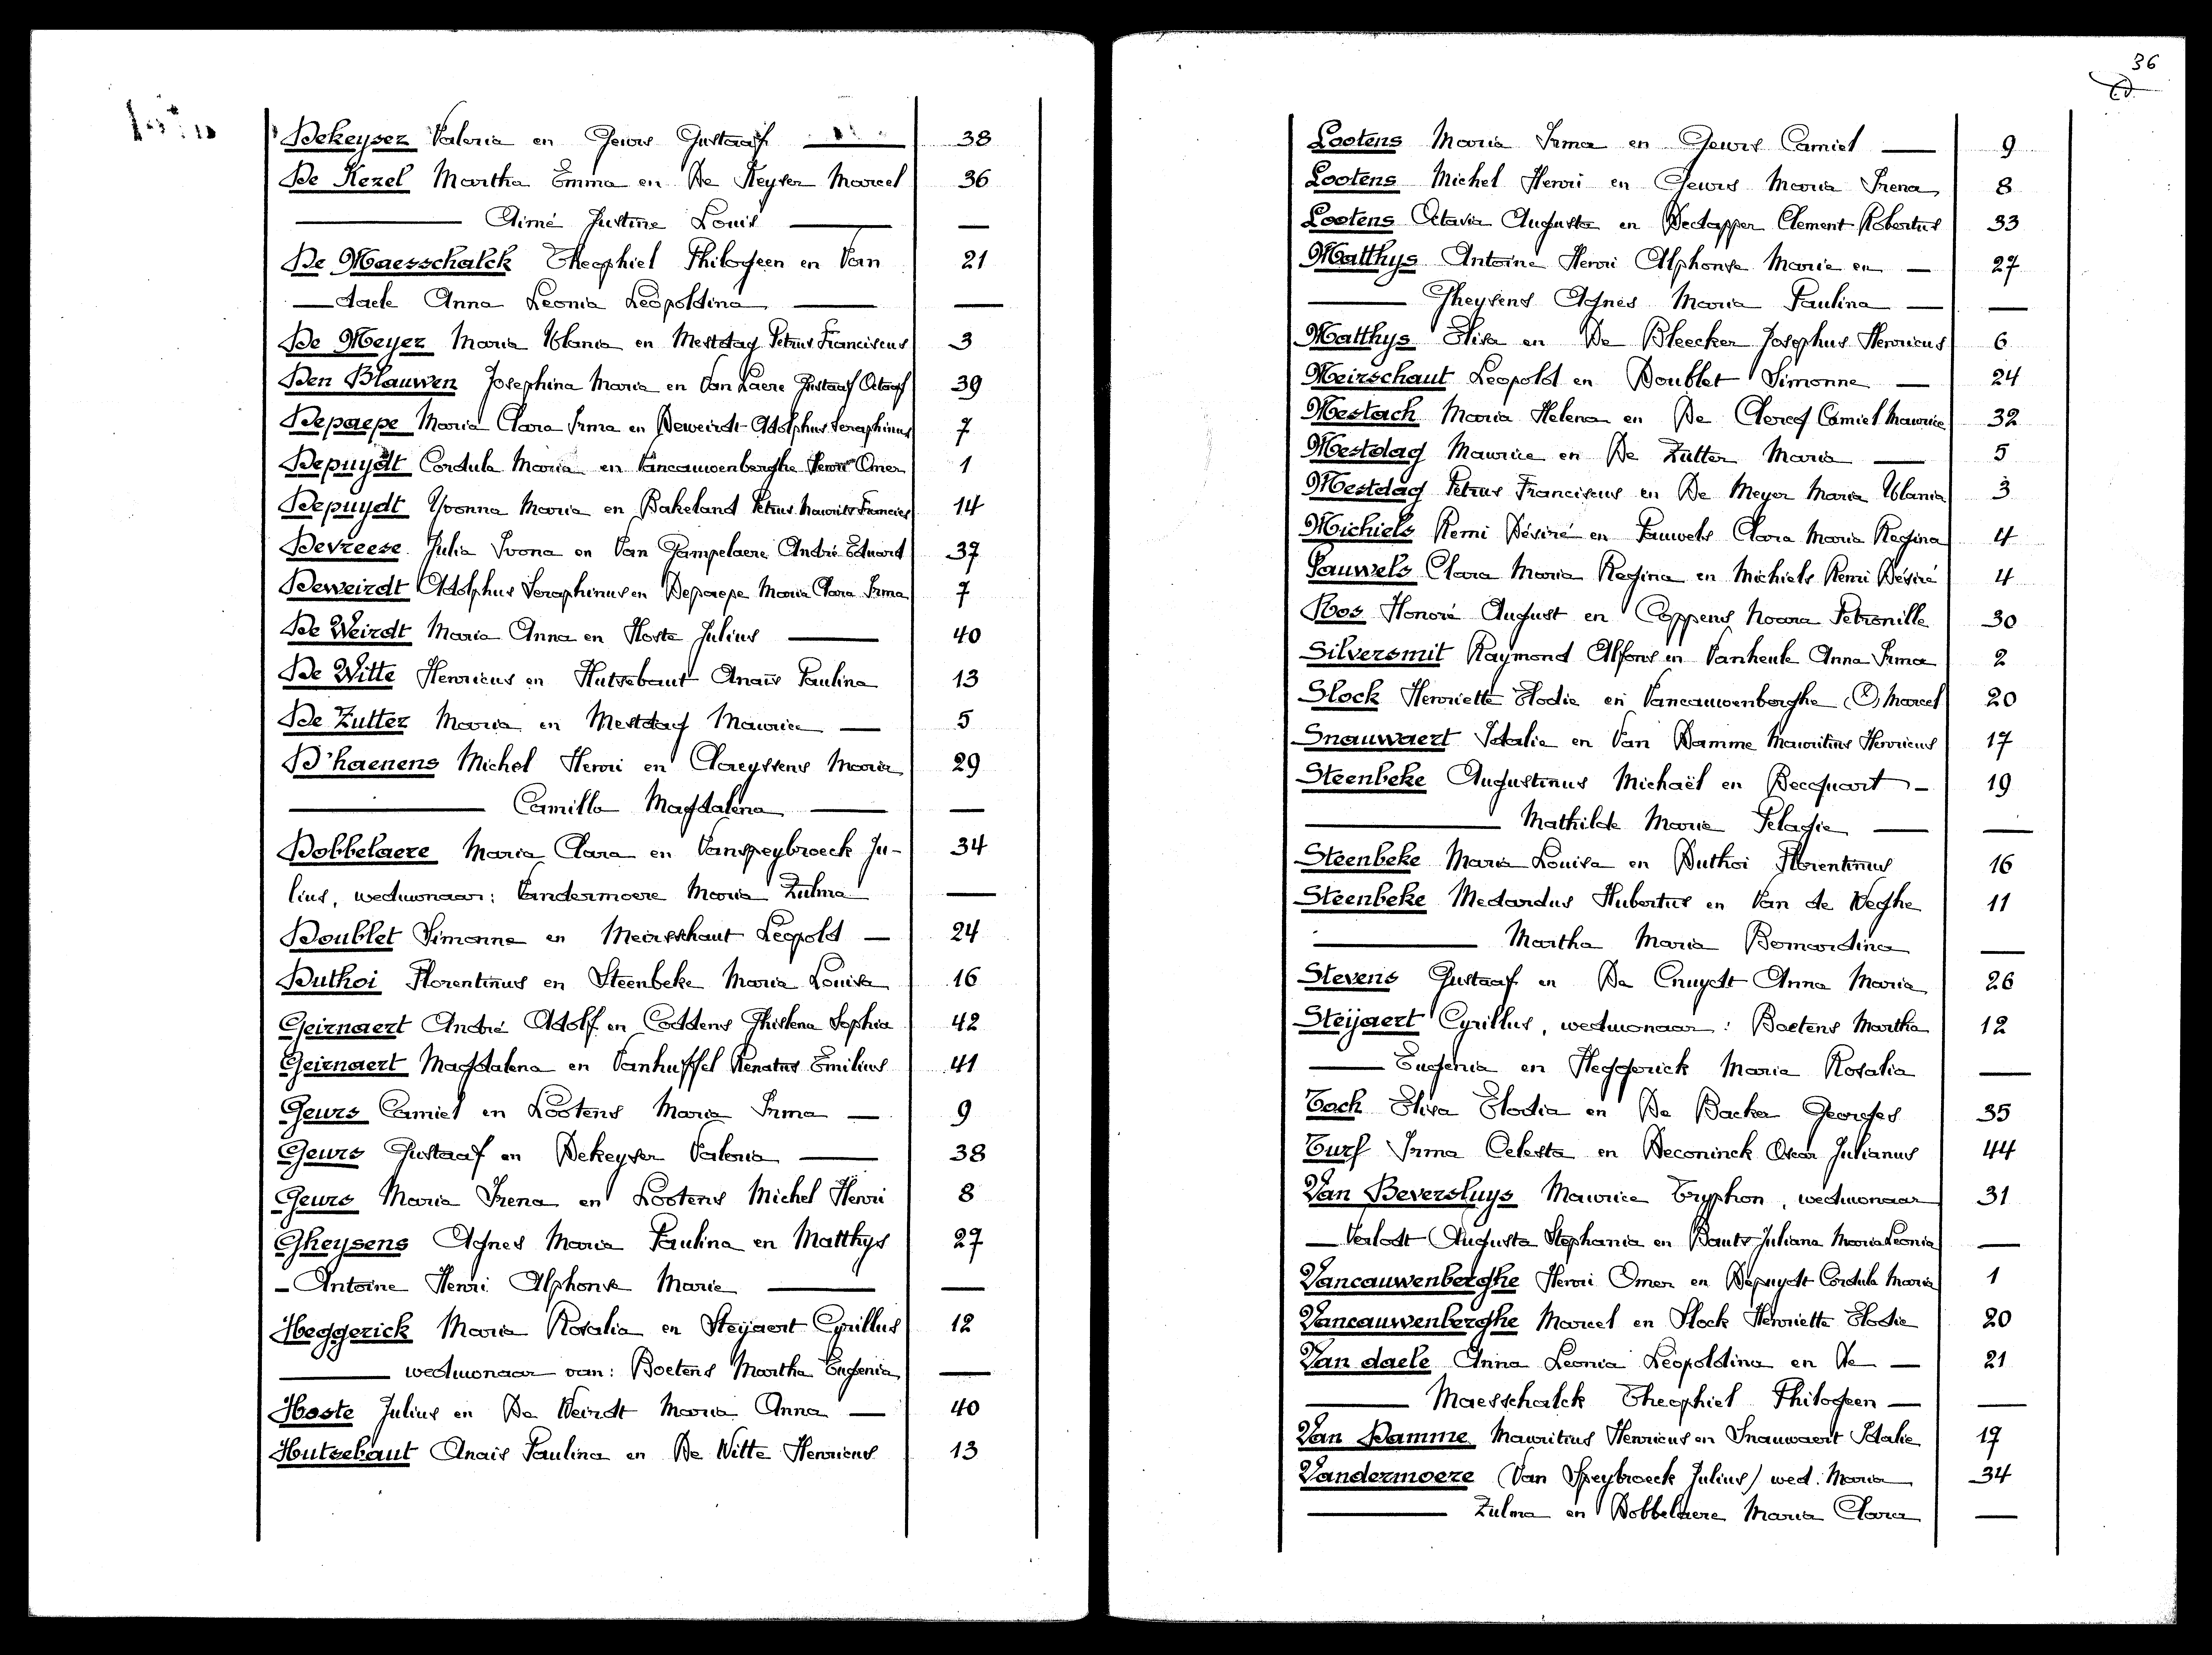 Dekeyser Valeria en Geurs Gustaaf — 38
De Kezel Martha Emma en De Keyser Marcel 36
— Aimé Justine Louis — —
De Maesschalck Theophiel Philogeen en Van 21
— daele Anna Leonia Leopoldina — —
De Meyer Maria Ulania en Mestdag Petrus Franciscus 3
Den Blauwen Josephina Maria en Van Laere Gustaaf Octaaf 39
Depaepe Maria Clara Irma en Deweirdt Adolphus Seraphinus 7
Depuydt Cordula Maria en Vancauwenberghe Henri Omer 1
Depuydt Yvonna Maria en Bakeland Petrus Maurits Francies 14
Devreese Julia Ivona en Van Gampelaere André Eduard 37
Deweirdt Adolphus Seraphinus en Depaepe Maria Clara Irma 7
De Weirdt Maria Anna en Hoste Julius — 40
De Witte Henricus en Hutsebaut Anaïs Paulina 13
De Zutter Maria en Mestdag Maurice — 5
D'haenens Michel Henri en Claeyssens Maria 29
— Camilla Magdalena — —
Dobbelaere Maria Clara en Vanspeybroeck Ju- 34
lius, weduwnaar: Vandermoere Maria Zulma —
Doublet Simonne en Meirsschaut Leopold — 24
Duthoi Florentinus en Steenbeke Maria Louisa 16
Geirnaert André Adolf en Coddens Ghislena Sophia 42
Geirnaert Magdalena en Vanhuffel Renatus Emilius 41
Geurs Camiel en Lootens Maria Irma — 9
Geurs Gustaaf en Dekeyser Valeria — 38
Geurs Maria Irena en Lootens Michel Henri 8
Gheysens Agnes Maria Paulina en Matthys 27
— Antoine Henri Alphonse Marie — —
Heggerick Maria Rosalia en Steÿaert Cyrillus 12
— weduwnaar van: Boetens Martha Eugenia —
Hoste Julius en De Weirdt Maria Anna — 40
Hutsebaut Anaïs Paulina en De Witte Henricus 13
36
Lootens Maria Irma en Geurs Camiel — 9
Lootens Michel Henri en Geurs Maria Irena 8
Lootens Octavia Augusta en Dedapper Clement Robertus 33
Matthys Antoine Henri Alphonse Marie en — 27
— Gheysens Agnes Maria Paulina — —
Matthys Elisa en De Bleecker Josephus Henricus 6
Meirschaut Leopold en Doublet Simonne — 24
Mestach Maria Helena en De Clercq Camiel Maurice 32
Mestdag Maurice en De Zutter Maria — 5
Mestdag Petrus Franciscus en De Meyer Maria Ulania 3
Michiels Remi Désiré en Pauwels Clara Maria Regina 4
Pauwels Clara Maria Regina en Michiels Remi Désiré 4
Ros Honoré August en Coppens Noara Petronille 30
Silversmit Raymond Alfons en Vanheule Anna Irma 2
Slock Henriette Elodie en Vancauwenberghe (X) Marcel 20
Snauwaert Idalie en Van Damme Mauritius Henricus 17
Steenbeke Augustinus Michaël en Becquart — 19
— Mathilde Marie Pelagie — —
Steenbeke Maria Louisa en Duthoi Florentinus 16
Steenbeke Medardus Hubertus en Van de Weghe 11
— Martha Maria Bernardina —
Stevens Gustaaf en De Cnuydt Anna Maria 26
Steÿaert Cyrillus, weduwnaar: Boetens Martha 12
— Eugenia en Heggerick Maria Rosalia —
Tack Elisa Elodia en De Backer Georges 35
Turf Irma Celesta en Deconinck Oscar Julianus 44
Van Beversluys Maurice Tryphon, weduwnaar 31
— Verlodt Augusta Stephania en Bauts Juliana Maria Leonia —
Vancauwenberghe Henri Omer en Depuydt Cordula Maria 1
Vancauwenberghe Marcel en Slock Henriette Elodie 20
Van daele Anna Leonia Leopoldina en De — 21
— Maesschalck Theophiel Philogeen — —
Van Damme Mauritius Henricus en Snauwaert Idalie 17
Vandermoere (Van Speybroeck Julius) wed. Maria 34
— Zulma en Dobbelaere Maria Clara —